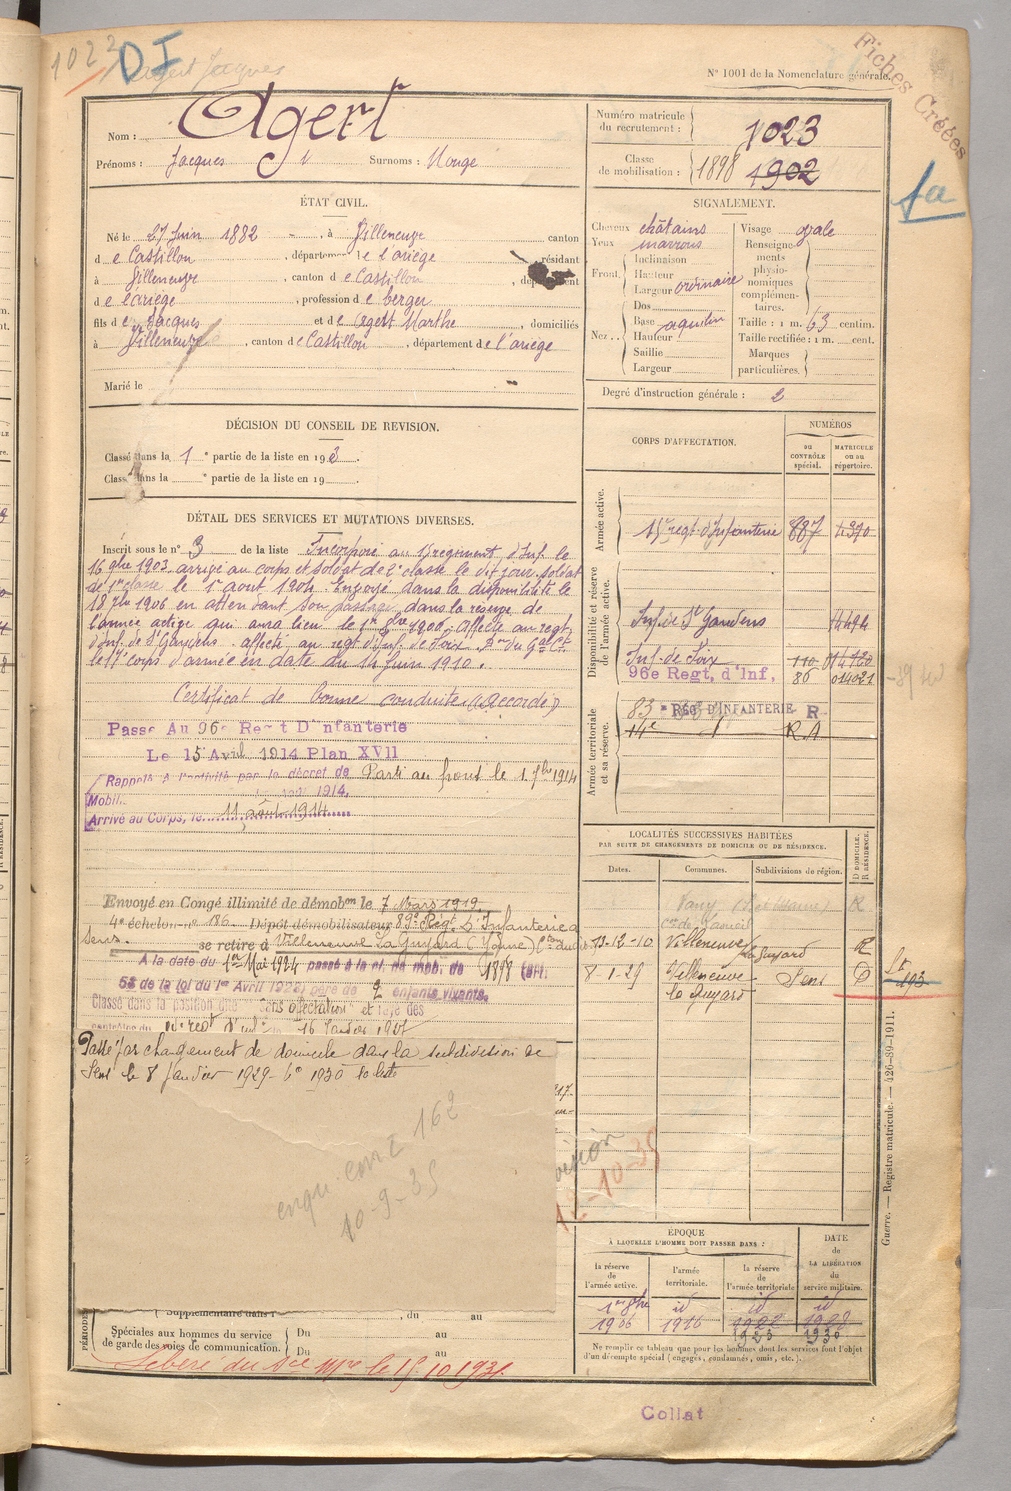 1022 DI
Agert Jacques
N° 1001 de la Nomenclature générale.
Fiches Créées
fa
Nom : Agert
Prénoms : Jacques Surnoms : Mouge
Numéro matricule du recrutement : 1023
Classe de mobilisation : 1898 1902
ÉTAT CIVIL.
Né le 27 Juin 1882, à Villeneuve canton
de Castillon, département de l'ariège résidant
à Villeneuve, canton de Castillon, département
de l'ariège, profession de berger
fils de Jacques et de Agert Marthe, domiciliés
à Villeneuve, canton de Castillon, département de l'ariège
Marié le
SIGNALEMENT.
Cheveux châtains
Yeux marrons
Front. Inclinaison
Hauteur
Largeur ordinaire
Nez.. Dos
Base aquilin
Hauteur
Saillie
Largeur
Visage ovale
Renseignements physionomiques complémentaires.
Taille : 1 m. 63 centim.
Taille rectifiée : 1 m. cent.
Marques particulières.
Degré d'instruction générale : 2
DÉCISION DU CONSEIL DE REVISION.
Classé dans la 1e partie de la liste en 1903.
Classé dans la e partie de la liste en 19 .
DÉTAIL DES SERVICES ET MUTATIONS DIVERSES.
Inscrit sous le n° 3 de la liste Incorporé au 15 régiment d'Inf. le
16 9bre 1903. arrivé au corps et soldat de 2e classe le dit jour. soldat
de 1re classe le 1er aout 1904. Envoyé dans la disponibilité le
18 7bre 1906 en attendant son passage dans la réserve de
l'armée active qui aura lieu le 1er 8bre 1906. Affecté au regt
d'Inf. de St Gaudens. affecté au regt d'Inf. de Foix.
le 17e corps d'armée en date du 14 Juin 1910.
Certificat de bonne conduite "Accordé"
Passé Au 96e Regt D'Infanterie
Le 15 Avril 1914 Plan XVII
Rappelé à l'activité par le décret de
Mobil. 1914.
Parti au front le 1 7bre 1914
Arrivé au Corps, le 11 août 1914
Envoyé en Congé illimité de démobon le 7 Mars 1919
4e échelon n° 186. Dépôt démobilisateur 89e Régt d'Infanterie à
Sens. se retire à Villeneuve La Guyard (Yonne)
A la date du 1er Mai 1924 passé à la cl. de mob. de 1898 (art.
58 de la loi du 1er Avril 1923) père de 2 enfants vivants.
Classé dans la position dite "sans affectation" et rayé des
contrôles du
Passé par changement de domicile dans la subdivision de
Sens le 8 Janvier 1929
162
10-9-35
Supplémentaire dans l' , du au
PÉRIODES
Spéciales aux hommes du service de garde des voies de communication. Du au
Du au
Libéré du sce mre le 15 10 1931.
CORPS D'AFFECTATION.
NUMÉROS
au contrôle spécial.
matricule ou au répertoire.
Armée active.
15e regt. d'Infanterie 887 4370
Disponibilité et réserve de l'armée active.
Inf. de St Gaudens
Inf. de Foix
96e Regt, d'Inf, 86 014021
Armée territoriale et sa réserve.
83 Rég D'INFANTERIE R
14e RA
LOCALITÉS SUCCESSIVES HABITÉES
PAR SUITE DE CHANGEMENTS DE DOMICILE OU DE RÉSIDENCE.
Dates. Communes. Subdivisions de région. D DOMICILE. R RÉSIDENCE.
13-12-10 Villeneuve la Guyard R
8-1-29 Villeneuve la Guyard Sens D
12-10-35
ÉPOQUE
À LAQUELLE L'HOMME DOIT PASSER DANS :
la réserve de l'armée active. l'armée territoriale. la réserve de l'armée territoriale DATE de LA LIBÉRATION du service militaire.
1er 8bre 1906 id 1916 id 1922 id 1928
1930
Ne remplir ce tableau que pour les hommes dont les services font l'objet
d'un décompte spécial (engagés, condamnés, omis, etc.).
Guerre. — Registre matricule. — 426-89-1911.
Collat